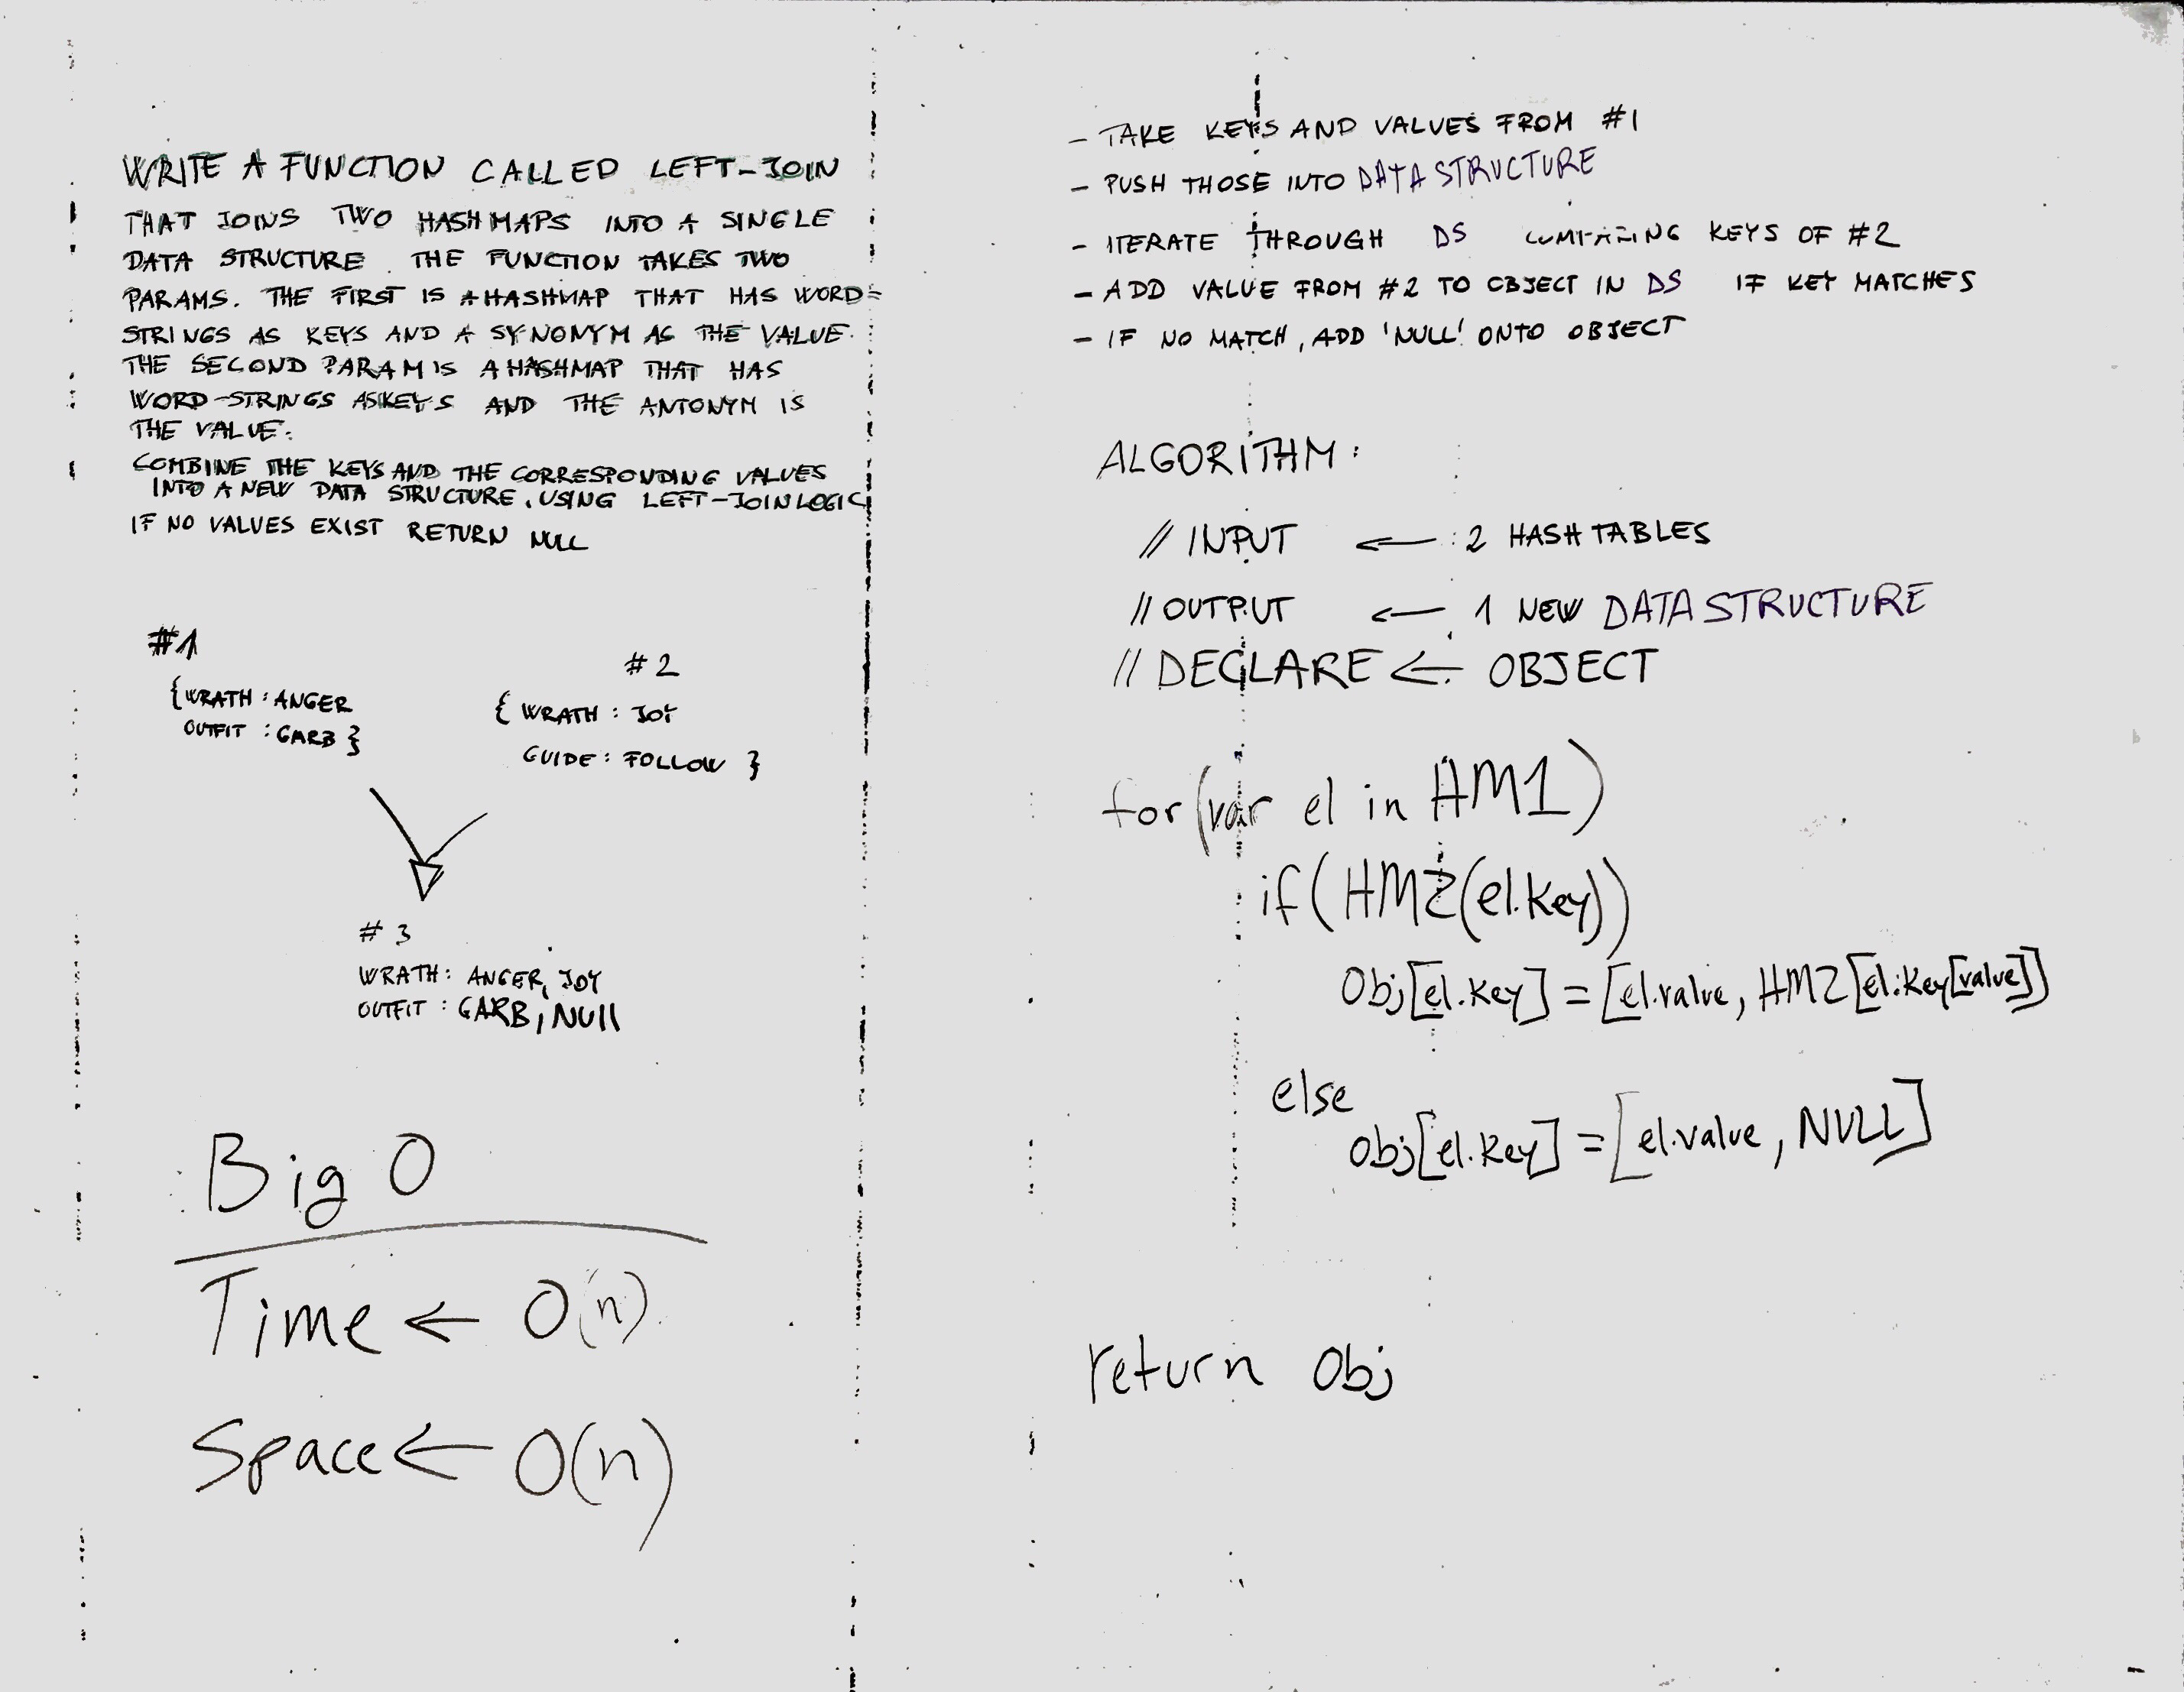 WRITE A FUNCTION CALLED LEFT-JOIN
THAT JOINS TWO HASHMAPS INTO A SINGLE
DATA STRUCTURE. THE FUNCTION TAKES TWO
PARAMS. THE FIRST IS A HASHMAP THAT HAS WORD-
STRINGS AS KEYS AND A SYNONYM AS THE VALUE.
THE SECOND PARAM IS A HASHMAP THAT HAS
WORD-STRINGS AS KEYS AND THE ANTONYM IS
THE VALUE.
COMBINE THE KEYS AND THE CORRESPONDING VALUES
INTO A NEW DATA STRUCTURE, USING LEFT-JOIN LOGIC
IF NO VALUES EXIST RETURN NULL
#1
{WRATH : ANGER
OUTFIT : GARB }
#2
{ WRATH : JOY
GUIDE : FOLLOW }
#3
WRATH : ANGER, JOY
OUTFIT : GARB, NULL
Big O
Time ← O(n)
Space ← O(n)
- TAKE KEYS AND VALUES FROM #1
- PUSH THOSE INTO DATA STRUCTURE
- ITERATE THROUGH DS COMPARING KEYS OF #2
- ADD VALUE FROM #2 TO OBJECT IN DS IF KEY MATCHES
- IF NO MATCH, ADD 'NULL' ONTO OBJECT
ALGORITHM :
// INPUT ← 2 HASH TABLES
// OUTPUT ← 1 NEW DATA STRUCTURE
// DECLARE ← OBJECT
for (var el in HM1)
if (HM2(el.key))
Obj[el.key] = [el.value, HM2[el.key[value]]
else
Obj[el.key] = [el.value, NULL]
return Obj